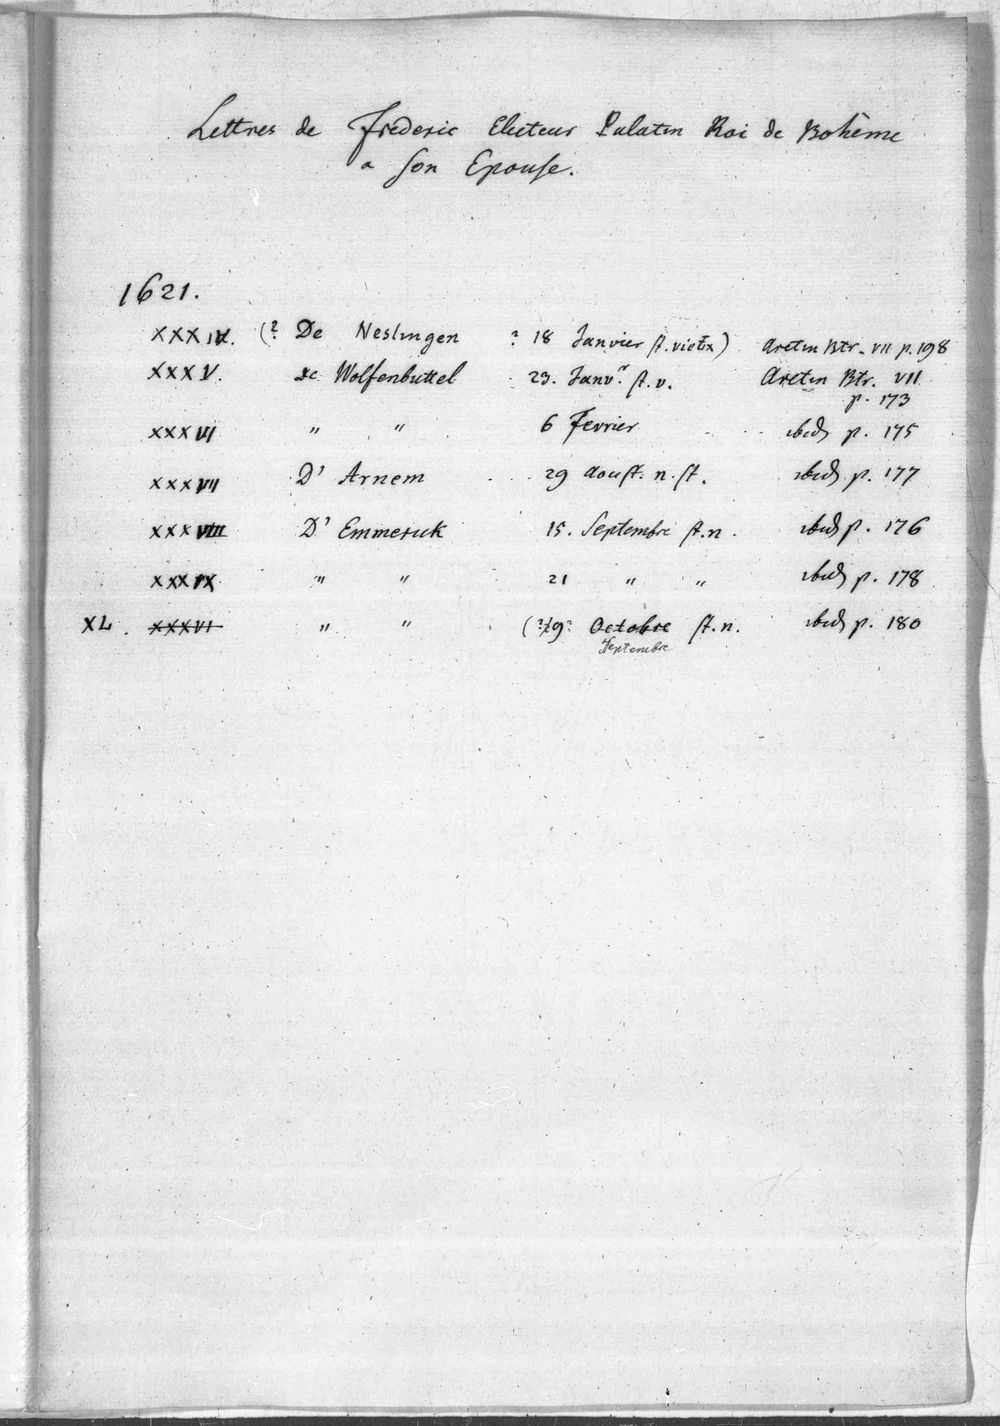 Lettres de Frederic Electeur Palatin Roi de Bohême
a son Epouse.
1621.
XXXIV. (? De Neslingen ? 18 Janvier st. vieux) Aretin Btr. VII p. 198
XXXV. de Wolfenbuttel 23. Janvr st. v. Aretin Btr. VII
p. 173
XXXVI " " 6 Fevrier ibid p. 175
XXXVII D' Arnem 29 Aoust. n. st. ibid. p. 177
XXXVIII D' Emmerick 15. Septembre st. n. ibid p. 176
XXXIX " " 21 " " ibid p. 178
XL. XXXVI " " (?19? Octobre st. n. ibid p. 180
Septembre